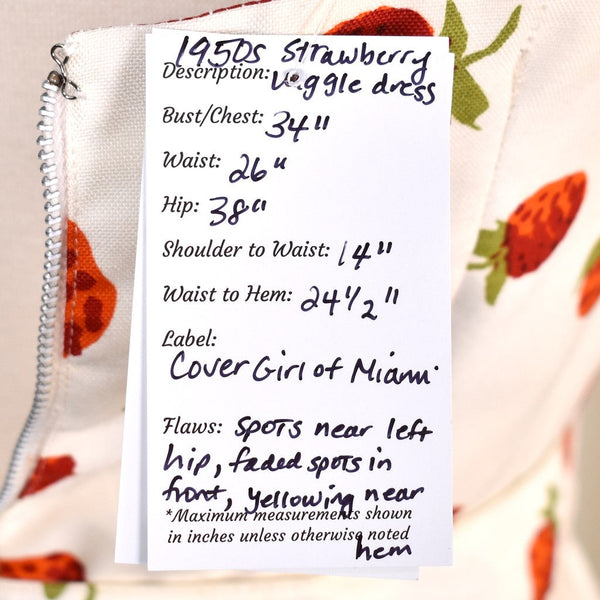 1950s Strawberry
Description: wiggle dress
Bust/Chest: 34"
Waist: 26"
Hip: 38"
Shoulder to Waist: 14"
Waist to Hem: 24 1/2"
Label:
Cover Girl of Miami
Flaws: spots near left
hip, faded spots in
front, yellowing near
*Maximum measurements shown
in inches unless otherwise noted
hem